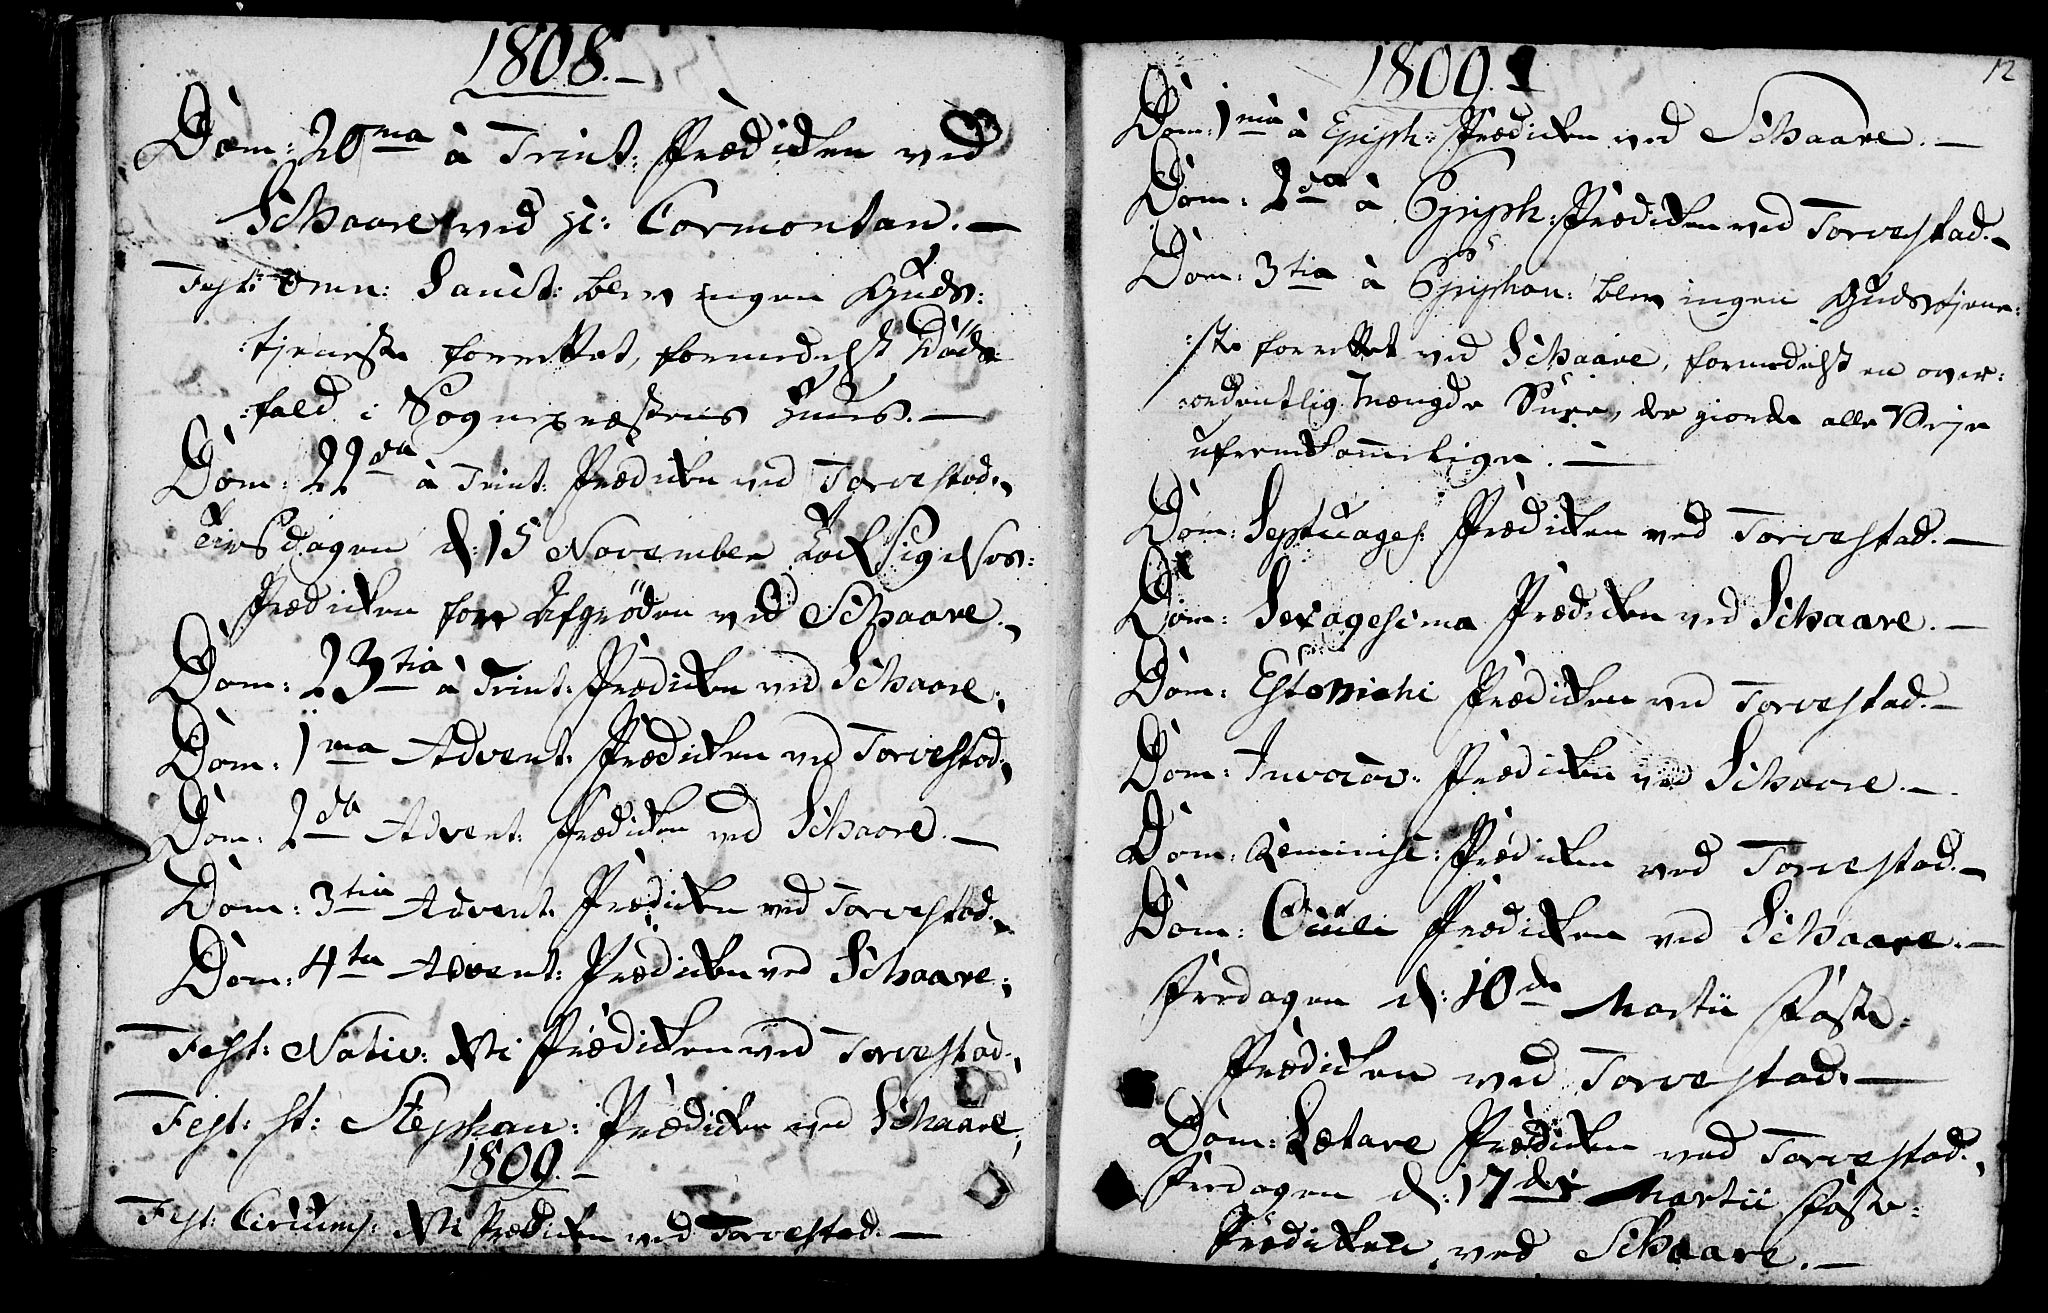 1808.
Dom: 20ma à Trint: Prædicken ved
Schaare ved Hr: Cormontan.
Fest: Omn: Sanct: blev ingen Guds:
:tjeneste forrettet, formedelst Døds
:fald i Sognepræstens Huus.
Dom: 22da à Trint: Prædicken ved Torvestad.
Tirsdagen d: 15 November Taksigelses:
Prædicken for Afgrøden ved Schaare.
Dom: 23tia à Trint: Prædicken ved Schaare.
Dom: 1ma Advent: Prædicken ved Torvestad.
Dom: 2da Advent: Prædicken ved Schaare.
Dom: 3tia Advent: Prædicken ved Torvestad.
Dom: 4ta Advent: Prædicken ved Schaare.
Fest: Nativ: Xti Prædicken ved Torvestad.
Fest: St: Stephan: Prædicken ved Schaare.
1809.
Fest: Circums: Xti Prædicken ved Torvestad.
12
1809.
Dom: 1ma à Epiph: Prædicken ved Schaare.
Dom: 2da à Epiph: Prædicken ved Torvestad.
Dom: 3tia à Epiphan: blev ingen Gudstjene:
:ste forrettet ved Schaare, formedelst en over:
:ordentlig Mængde Snee, der giorde alle Veje
ufremkommelige.
Dom: Septuages: Prædicken ved Torvestad.
Dom: Sexagesima Prædicken ved Schaare.
Dom: Estomihi Prædicken ved Torvestad.
Dom: Invocav: Prædicken ved Schaare.
Dom: Reminisc: Prædicken ved Torvestad.
Dom: Oculi Prædicken ved Schaare.
Fredagen d: 10de Martii Faste:
Prædicken ved Torvestad.
Dom: Lætare Prædicken ved Torvestad.
Fredagen d: 17de Martii Faste:
Prædicken ved Schaare.